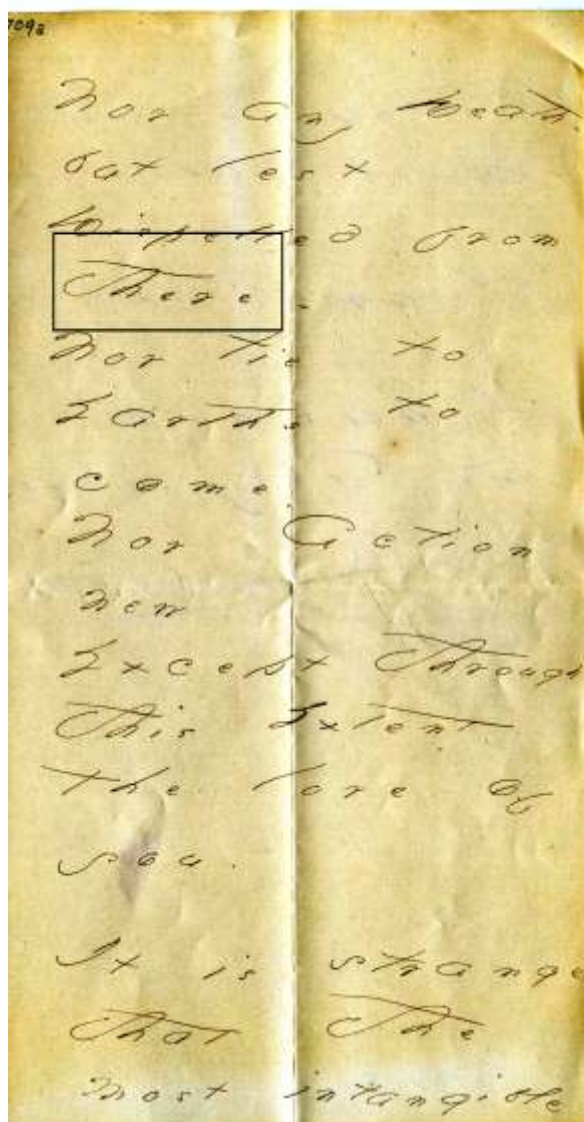 709a
Nor any Death -
but lest
Dispelled from
There -
Nor tie to
Earths to
come
Nor Action
new
Except Through
This Extent
The love of
you.
It is strange
That The
most intangible